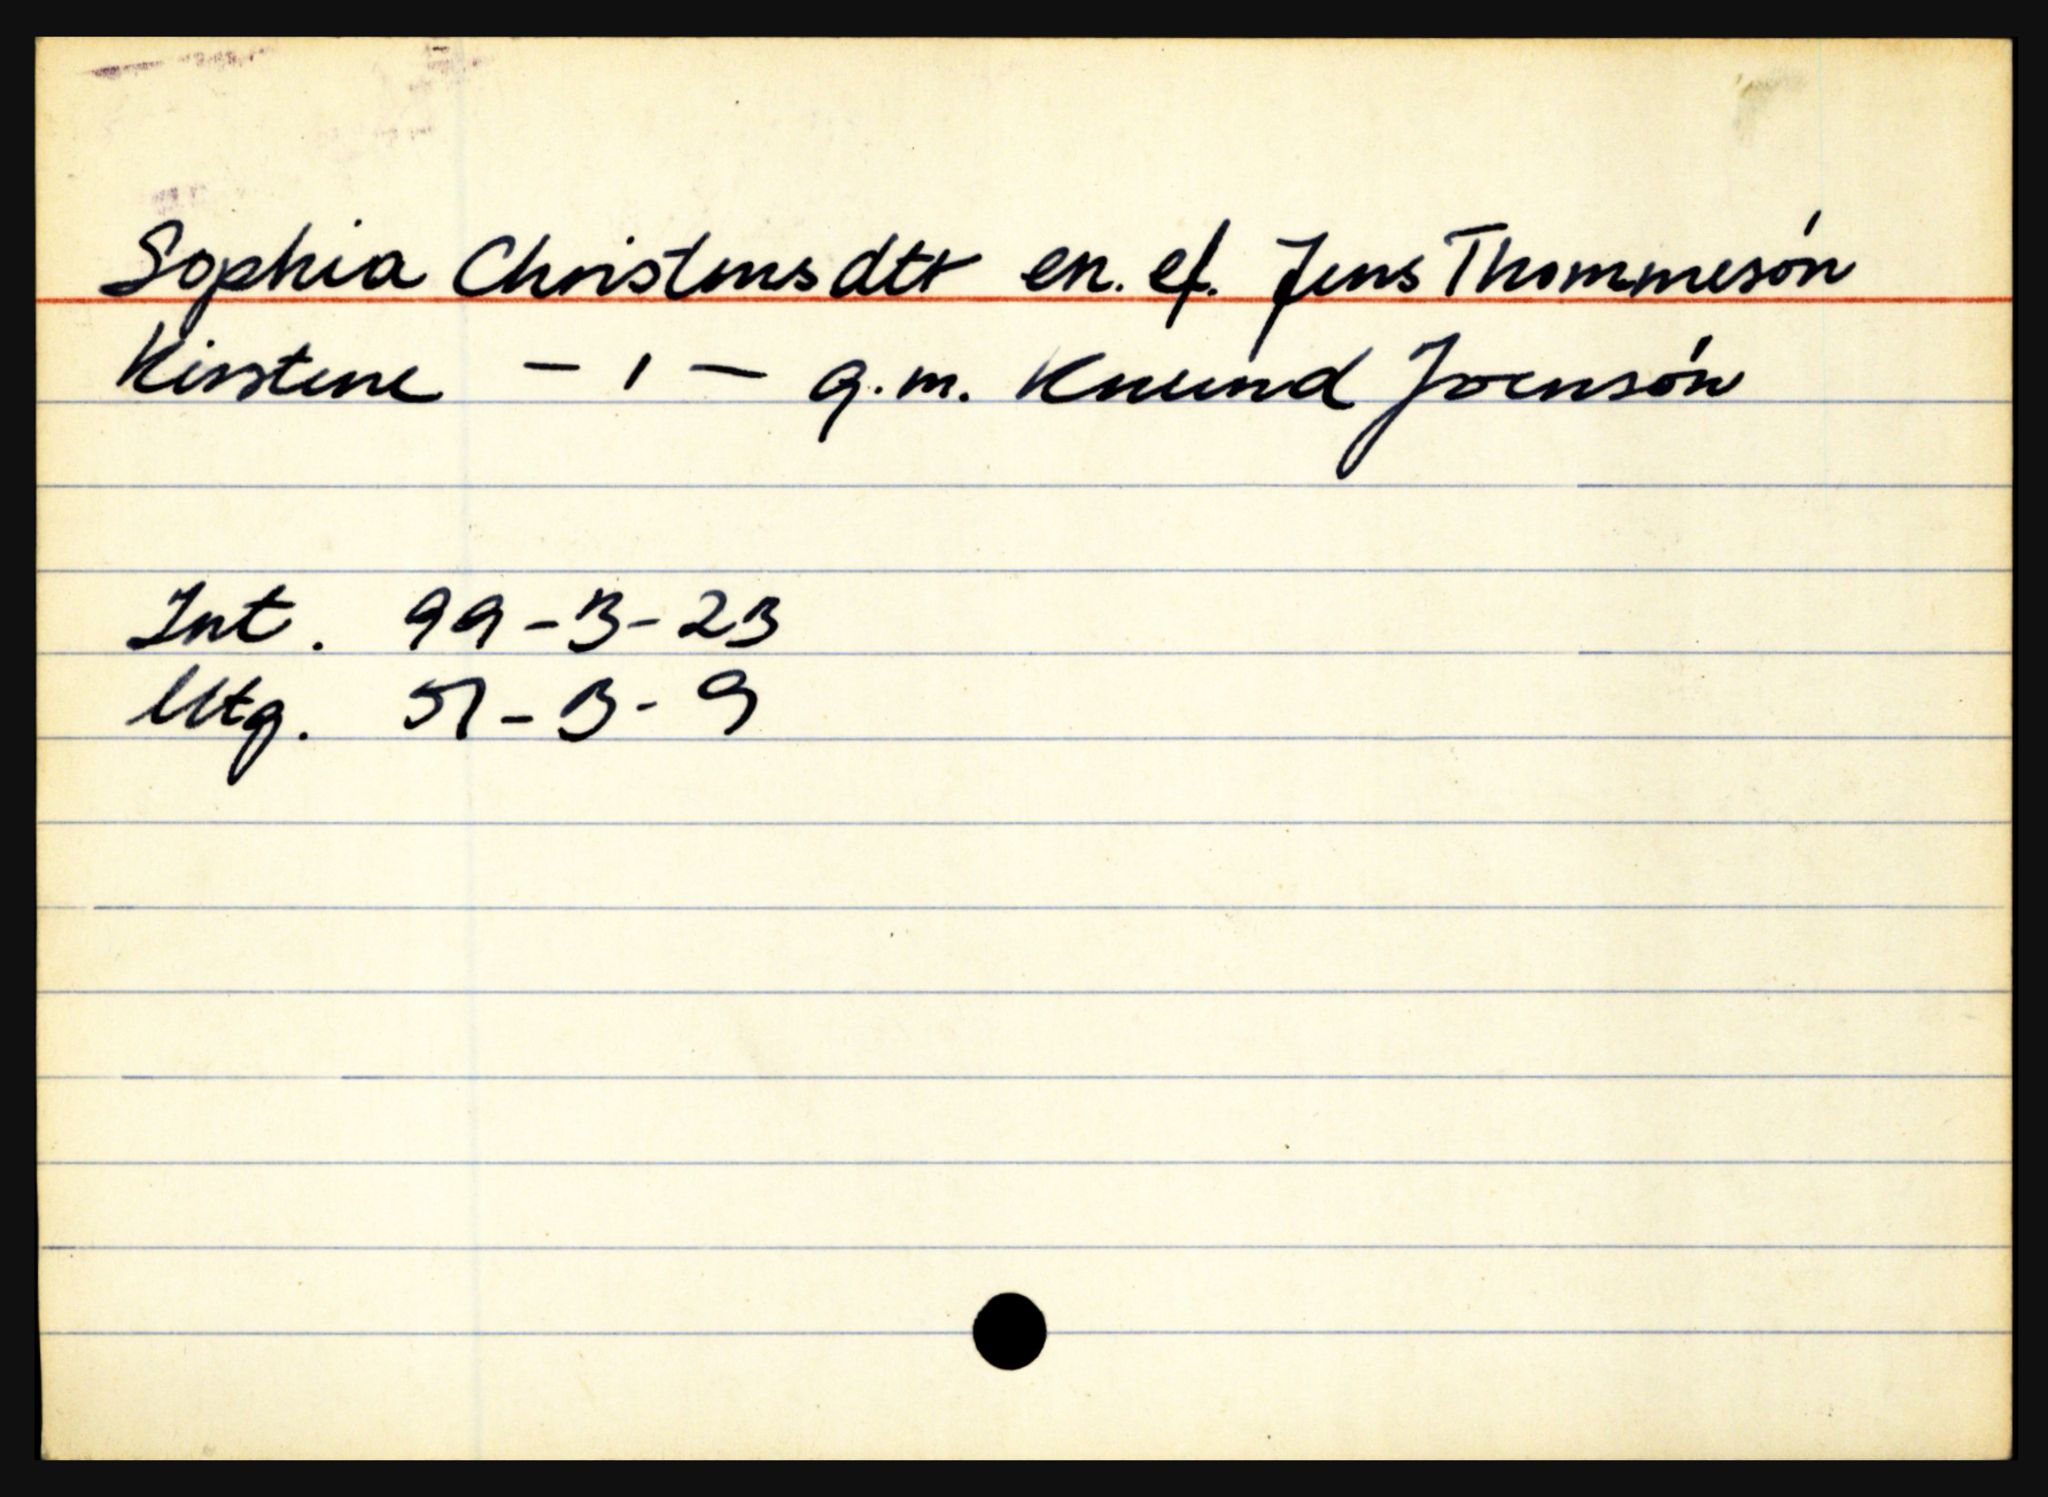 Sophia Christensdtr en. ef. Jens Thommesón
Kirstene - ı - g.m. Knund Joensón
Int. 99-B-2B
Utg. 51-B-9